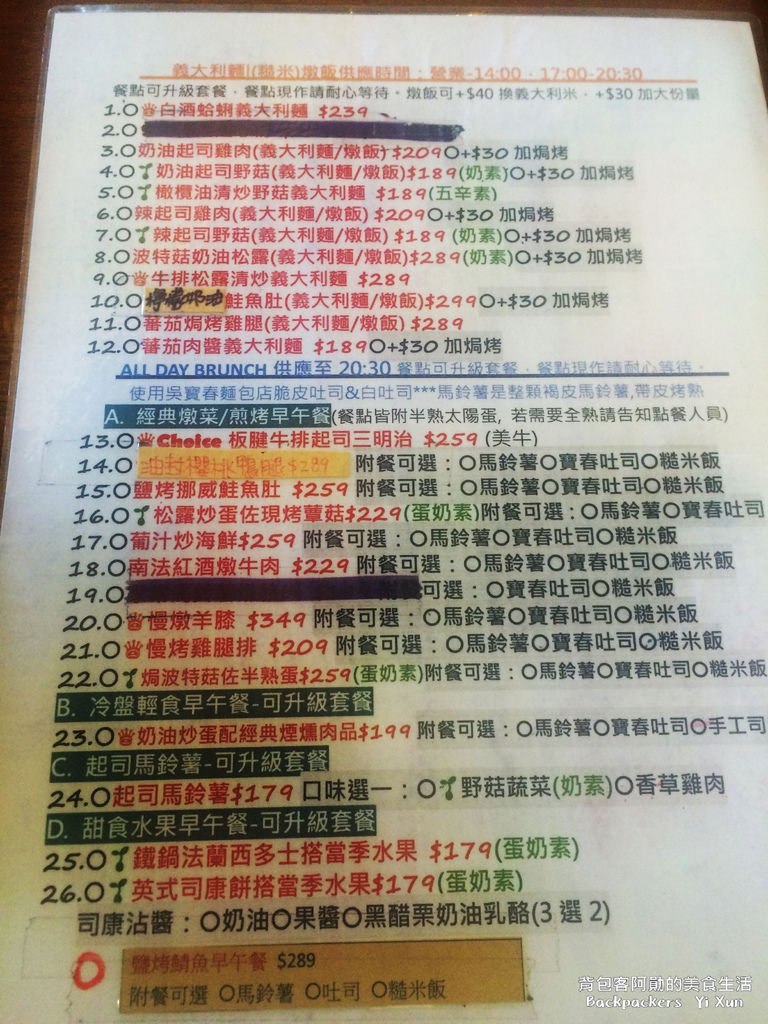 義大利麵|(糙米)燉飯供應時間：營業-14:00，17:00-20:30
餐點可升級套餐，餐點現作請耐心等待。燉飯可+$40 換義大利米，+$30 加大份量
1.O 白酒蛤蜊義大利麵 $239
2.O
3.O奶油起司雞肉(義大利麵/燉飯) $209O+$30 加焗烤
4.O 奶油起司野菇(義大利麵/燉飯)$189(奶素)O+$30 加焗烤
5.O 橄欖油清炒野菇義大利麵 $189(五辛素)
6.O辣起司雞肉(義大利麵/燉飯) $209O+$30 加焗烤
7.O 辣起司野菇(義大利麵/燉飯) $189 (奶素)O+$30 加焗烤
8.O波特菇奶油松露(義大利麵/燉飯)$289(奶素)O+$30 加焗烤
9.O 牛排松露清炒義大利麵 $289
10.O 檸檬奶油鮭魚肚(義大利麵/燉飯)$299O+$30 加焗烤
11.O蕃茄焗烤雞腿(義大利麵/燉飯) $289
12.O蕃茄肉醬義大利麵 $189O+$30 加焗烤
ALL DAY BRUNCH 供應至 20:30 餐點可升級套餐，餐點現作請耐心等待。
使用吳寶春麵包店脆皮吐司&白吐司***馬鈴薯是整顆褐皮馬鈴薯,帶皮烤熟
A. 經典燉菜/煎烤早午餐(餐點皆附半熟太陽蛋, 若需要全熟請告知點餐人員)
13.O Choice 板腱牛排起司三明治 $259 (美牛)
14.O 油封櫻桃鴨腿$289 附餐可選：O馬鈴薯O寶春吐司O糙米飯
15.O鹽烤挪威鮭魚肚 $259 附餐可選：O馬鈴薯O寶春吐司O糙米飯
16.O 松露炒蛋佐現烤蕈菇$229(蛋奶素)附餐可選：O馬鈴薯O寶春吐司
17.O葡汁炒海鮮$259 附餐可選：O馬鈴薯O寶春吐司O糙米飯
18.O南法紅酒燉牛肉 $229 附餐可選：O馬鈴薯O寶春吐司O糙米飯
19.O 可選：O寶春吐司O糙米飯
20.O 慢燉羊膝 $349 附餐可選：O馬鈴薯O寶春吐司O糙米飯
21.O 慢烤雞腿排 $209 附餐可選：O馬鈴薯O寶春吐司O糙米飯
22.O 焗波特菇佐半熟蛋$259(蛋奶素)附餐可選：O馬鈴薯O寶春吐司O糙米飯
B. 冷盤輕食早午餐-可升級套餐
23.O 奶油炒蛋配經典煙燻肉品$199 附餐可選：O馬鈴薯O寶春吐司O手工司
C. 起司馬鈴薯-可升級套餐
24.O起司馬鈴薯$179 口味選一：O 野菇蔬菜(奶素)O香草雞肉
D. 甜食水果早午餐-可升級套餐
25.O 鐵鍋法蘭西多士搭當季水果 $179(蛋奶素)
26.O 英式司康餅搭當季水果$179(蛋奶素)
司康沾醬：O奶油O果醬O黑醋栗奶油乳酪(3 選 2)
O 鹽烤鯖魚早午餐 $289
附餐可選 O馬鈴薯 O吐司 O糙米飯
背包客阿勛的美食生活
Backpackers Yi Xun